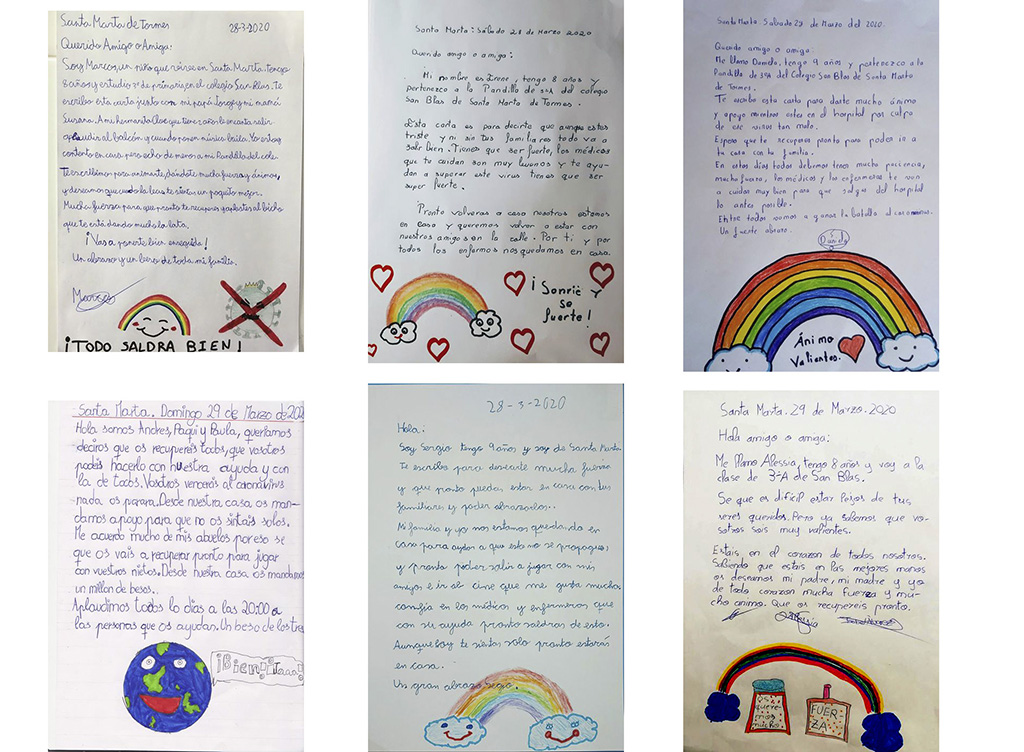 Santa Marta de Tormes
28-3-2020
Querido Amigo o Amiga:
Soy Marcos, un niño que vive en Santa Marta. Tengo
8 años y estudio 3º de primaria en el colegio San Blas. Te
escribo esta carta junto con mi papá Jorge y mi mamá
Susana. A mi hermanita Cloe que tiene 2 años le encanta salir
aplaudir al balcón y cuando ponen música baila. Yo estoy
contento en casa pero echo de menos a mi Pandilla del cole.
Te escribimos para animarte, dándote mucha fuerza y ánimos,
y deseamos que cuando la leas te sientas un poquito mejor.
Mucha fuerza para que pronto te recuperes y aplastes al bicho
que te está dando mucho la lata.
¡Vas a ponerte bien enseguida!
Un abrazo y un beso de toda mi familia.
Marcos
¡TODO SALDRA BIEN!
Santa Marta: Sábado 28 de Marzo 2020
Querido amigo o amiga:
Mi nombre es Irene, tengo 8 años y
pertenezco a la Pandilla de 3ºA del colegio
San Blas de Santa Marta de Tormes.
Esta carta es para decirte que aunque estes
triste y a sin tus familiares todo va a
salir bien. Tienes que ser fuerte, los médicos
que te cuidan son muy buenos y te ayu-
dan a superar este virus tienes que ser
super fuerte.
Pronto volveras a casa nosotros estamos
en casa y queremos volver a estar con
nuestros amigos en la calle. Por ti y por
todos los enfermos nos quedamos en casa.
¡Sonrie y
se
fuerte!
Santa Marta. Sabado 29 de Marzo del 2020.
Querido amigo o amiga.
Me llamo Daniela, tengo 9 años y pertenezco a la
Pandilla de 3ºA del Colegio San Blas de Santa Marta
de Tormes.
Te escribo esta carta para darte mucho ánimo
y apoyo mientras estes en el hospital por culpa
de ese virus tan malo.
Espero que te recuperes pronto para poder ir a
tu casa con tu familia.
En estos días todos debemos tener mucha paciencia,
mucha fuerza, los médicos y los enfermeros te van
a cuidar muy bien para que salgas del hospital
lo antes posible.
Entre todos vamos a ganar la batalla al coronavirus.
Un fuerte abrazo.
Daniela
Ánimo
Valientes.
Santa Marta. Domingo 29 de Marzo de 202
Hola somos Andres, Paqui y Paula, queriamos
deciros que os recupereis todos, que vosotros
podeis hacerlo con nuestra ayuda y con
la de todos. Vosotros vencereis al coronavirus
nada os parara. Desde nuestra casa os man-
damos apoyo para que no os sintais solos.
Me acuerdo mucho de mis abuelos por eso se
que os vais a recuperar pronto para jugar
con vuestros nietos. Desde nuestra casa os mandamos
un millon de besos..
Aplaudimos todos lo dias a las 20:00 a
las personas que os ayudan. Un beso de los tres
¡Bien
28-3-2020
Hola:
Soy Sergio tengo 9 años y soy de Santa Marta
Te escribo para desearte mucha fuerza
y que pronto puedas estar en casa con tus
familiares y poder abrazarlos.
Mi familia y yo nos estamos quedando en
casa para ayudar a que esto no se propague,
y pronto poder salir a jugar con mis
amigos e ir al cine que me gusta mucho
confia en los médicos y enfermeros que
con su ayuda pronto saldras de esto.
Aunque hoy te sientas solo pronto estarás
en casa.
Un gran abrazo Sergio.
Santa Marta. 29 de Marzo. 2020
Hola amigo o amiga:
Me llamo Alessia, tengo 8 años y voy a la
clase de 3ºA de San Blas.
Se que es dificil estar lejos de tus
seres queridos. Pero ya sabemos que vo-
sotros sois muy valientes.
Estais en el corazon de todos nosotros.
Sabiendo que estais en las mejores manos
os deseamos mi padre, mi madre y yo
de todo corazon mucha fuerza y mu-
cho animo. Que os recupereis pronto.
Alessia
os
quere-
mos
mucho.
FUER-
ZA